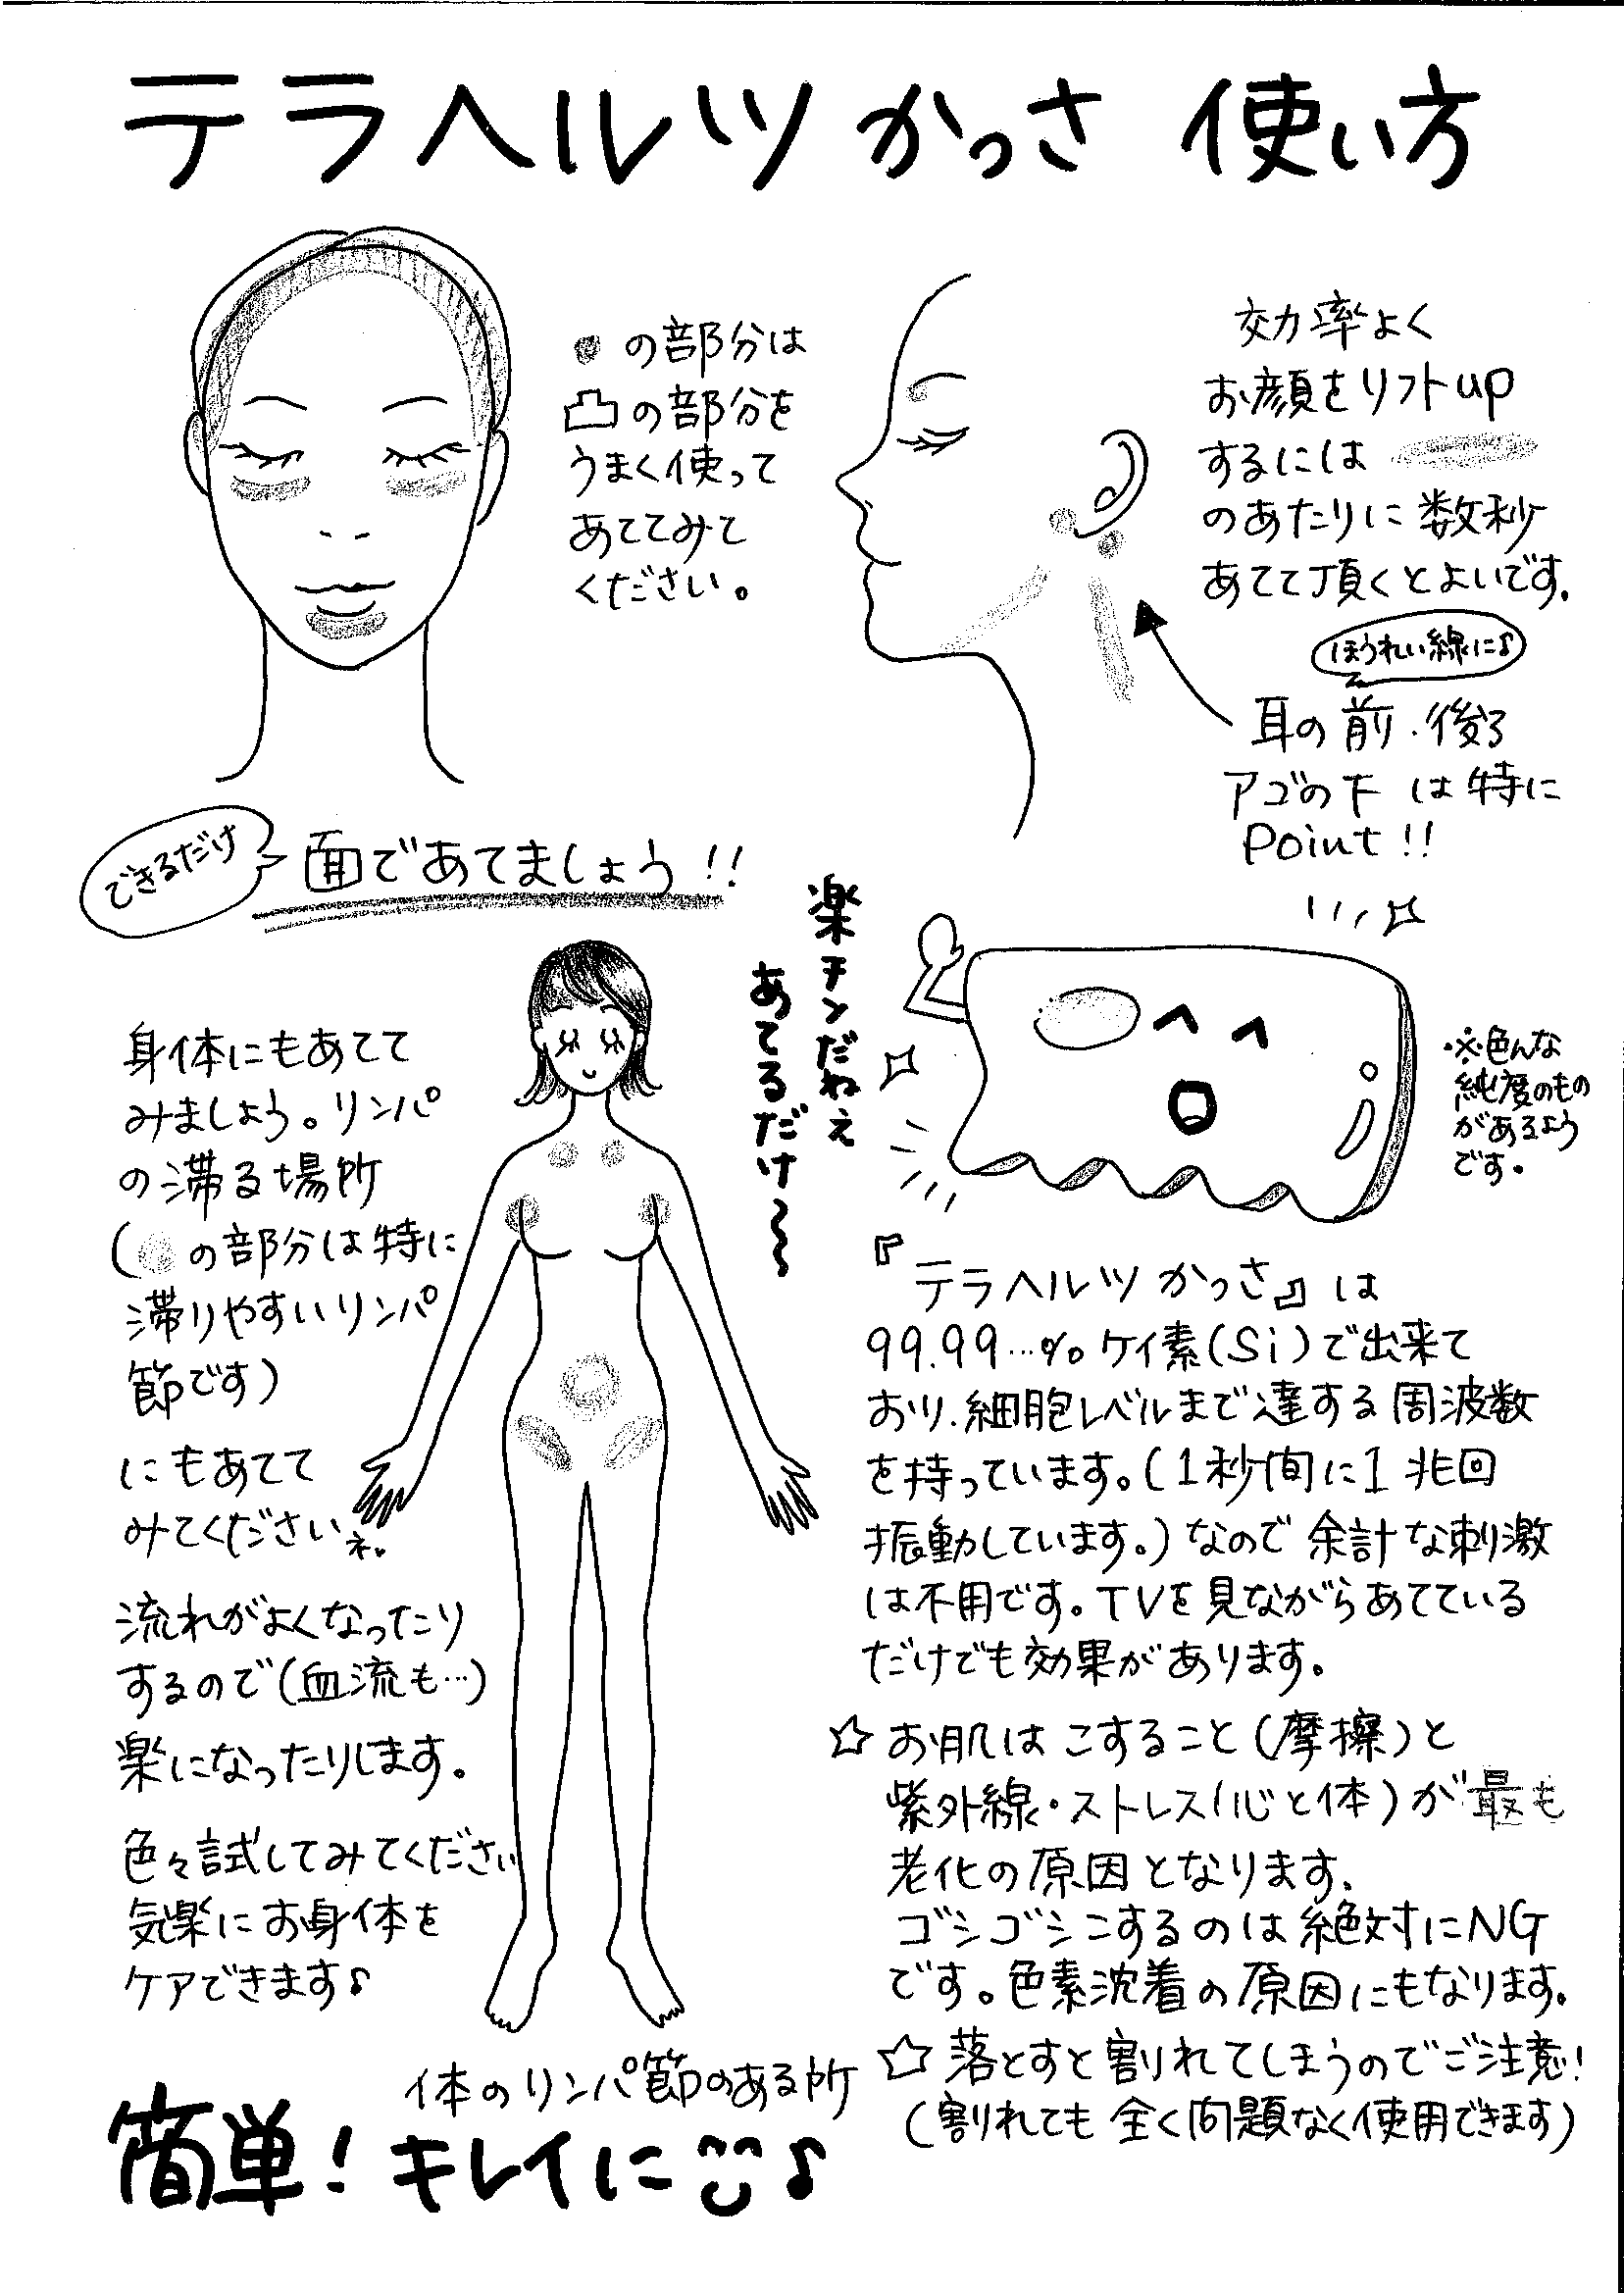 テラヘルツかっさ 使い方
の部分は
凸の部分を
うまく使って
あててみて
ください。
効率よく
お顔をリフトup
するには
のあたりに数秒
あてて頂くとよいです.
ほうれい線に♪
耳の前・後ろ
アゴの下 は特に
Point!!
できるだけ
面であてましょう!!
楽チンだねぇ
あてるだけ〜
※色んな
純度のもの
があるよう
です。
身体にもあてて
みましょう。リンパ
の滞る場所
( の部分は特に
滞りやすいリンパ
節です)
にもあてて
みてくださいネ。
流れがよくなったり
するので(血流も…)
楽になったりします。
色々試してみてください
気楽にお身体を
ケアできます♪
体のリンパ節のある所
簡単!キレイに♪
『テラヘルツかっさ』は
99.99…%ケイ素(Si)で出来て
おり、細胞レベルまで達する周波数
を持っています。(1秒間に1兆回
振動しています。)なので余計な刺激
は不用です。TVを見ながらあてている
だけでも効果があります。
☆お肌はこすること(摩擦)と
紫外線・ストレス(心と体)が最も
老化の原因となります、
ゴシゴシこするのは絶対にNG
です。色素沈着の原因にもなります。
☆落とすと割れてしまうのでご注意!
(割れても全く問題なく使用できます)